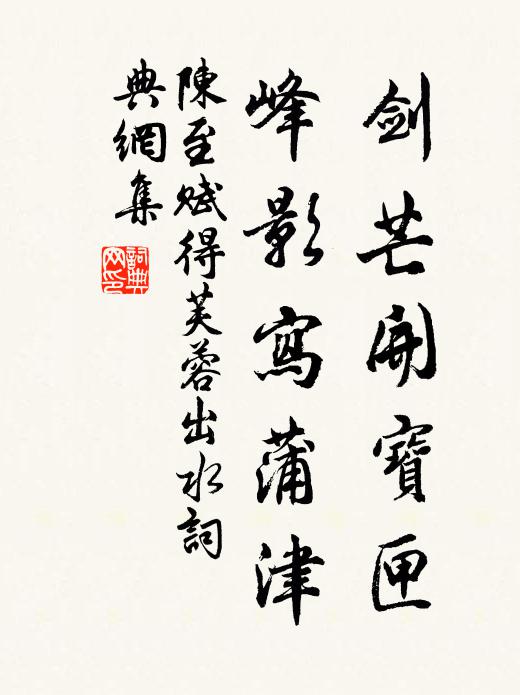 劍芒開寶匣
峰影寫蒲津
陳至賦得芙蓉出水詞
典網集
詞典
网印